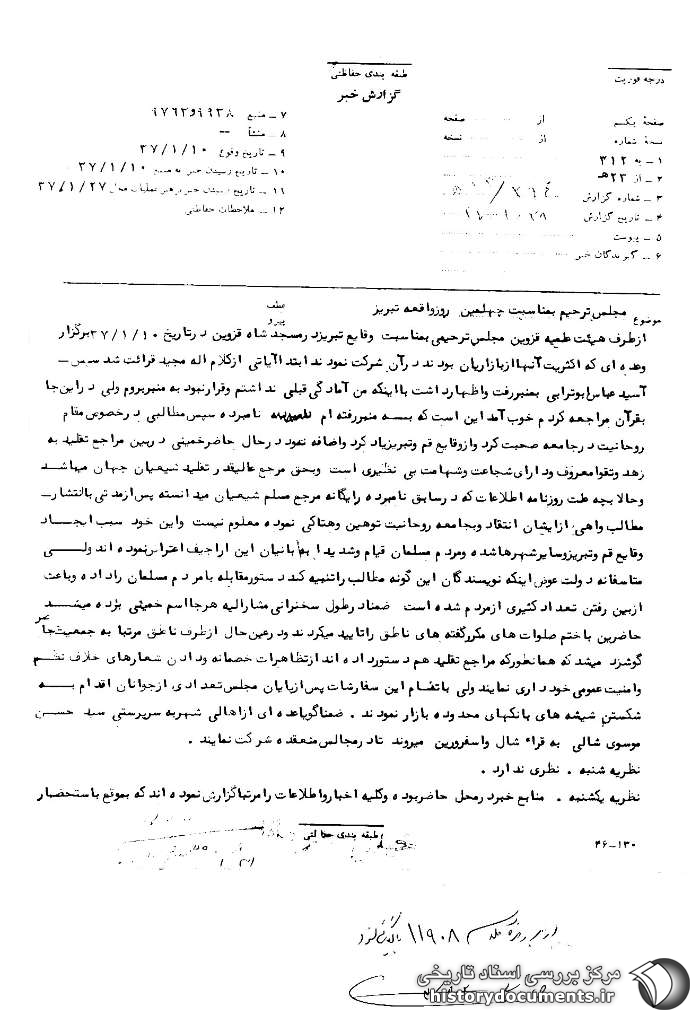 طبقه بندی حفاظتی
درجه فوریت
گزارش خبر
صفحهٔ یکم از صفحه
نسخهٔ شماره از نسخه
۱ – به ۳۱۲
۲ – از ۲۳هـ
۳ – شماره گزارش
۴ – تاریخ گزارش
۵ – پیوست
۶ – گیرندگان خبر
۷ – منبع ۹۹۳۸و۹۷۶۳
۸ – منشأ --
۹ – تاریخ وقوع ۳۷/۱/۱۰
۱۰ – تاریخ رسیدن خبر به منبع ۳۷/۱/۱۰
۱۱ – تاریخ رسیدن خبر به رهبر عملیات محل ۳۷/۱/۲۷
۱۲ – ملاحظات حفاظتی
موضوع مجلس ترحیم بمناسبت چهلمین روز واقعه تبریز
عطف
پیرو
از طرف هیئت علمیه قزوین مجلس ترحیمی بمناسبت وقایع تبریز در مسجد شاه قزوین در تاریخ ۳۷/۱/۱۰ برگزار
وعده ای که اکثریت آنها از بازاریان بودند در آن شرکت نمودند ابتدا آیاتی از کلام اله مجید قرائت شد سپس –
آسید عباس ابوترابی بمنبر رفت و اظهار داشت با اینکه من آمادگی قبلی نداشتم و قرار نبود به منبر بروم ولی در این جا
بقرآن مراجعه کردم خوب آمد این است که بسه منبر رفته ام نامبرده سپس مطالبی در خصوص مقام
روحانیت در جامعه صحبت کرد و از وقایع قم و تبریز یاد کرد و اضافه نمود در حال حاضر خمینی در بین مراجع تقلید به
زهد و تقوا معروف و دارای شجاعت و شهامت بی نظیری است وبحق مرجع عالیقدر تقلید شیعیان جهان میباشد
وحالا بچه علت روزنامه اطلاعات که در سابق نامبرده را یگانه مرجع مسلم شیعیان میدانسته پس از مدتی با انتشار –
مطالب واهی از ایشان انتقاد و بجامعه روحانیت توهین وهتاکی نموده معلوم نیست واین خود سبب ایجاد
وقایع قم و تبریز و سایر شهرها شده و مردم مسلمان قیام و شدیدا به بانیان این اراجیف اعتراض نموده اند ولی
متاسفانه دولت عوض اینکه نویسندگان این گونه مطالب را تنبیه کند دستور مقابله با مردم مسلمان را داده وباعث
ازبین رفتن تعداد کثیری از مردم شده است ضمنا در طول سخنرانی مشارالیه هرجا اسم خمینی برده میشد
حاضرین با ختم صلوات های مکرر گفته های ناطق را تایید میکردند و در عین حال از طرف ناطق مرتبا به جمعیت حاضر
گوشزد میشد که همانطور که مراجع تقلید هم دستور داده اند از تظاهرات خصمانه و دادن شعارهای خلاف نظم
وامنیت عمومی خودداری نمایند ولی با تمام این سفارشات پس از پایان مجلس تعدادی از جوانان اقدام به
شکستن شیشه های بانکهای محدوده بازار نمودند . ضمنا گویا عده ای از اهالی شهر به سرپرستی سید حسن
موسوی شالی به قراء شال واسفرورین میروند تا در مجالس منعقده شرکت نمایند .
نظریه شنبه . نظری ندارد .
نظریه یکشنبه . منابع خبر در محل حاضر بوده وکلیه اخبار و اطلاعات را مرتبا گزارش نموده اند که بموقع باستحضار
طبقه بندی حفاظتی
۳۶-۱۳۰
۱۱۹۰۸
مرکز بررسی اسناد تاریخی
historydocuments.ir